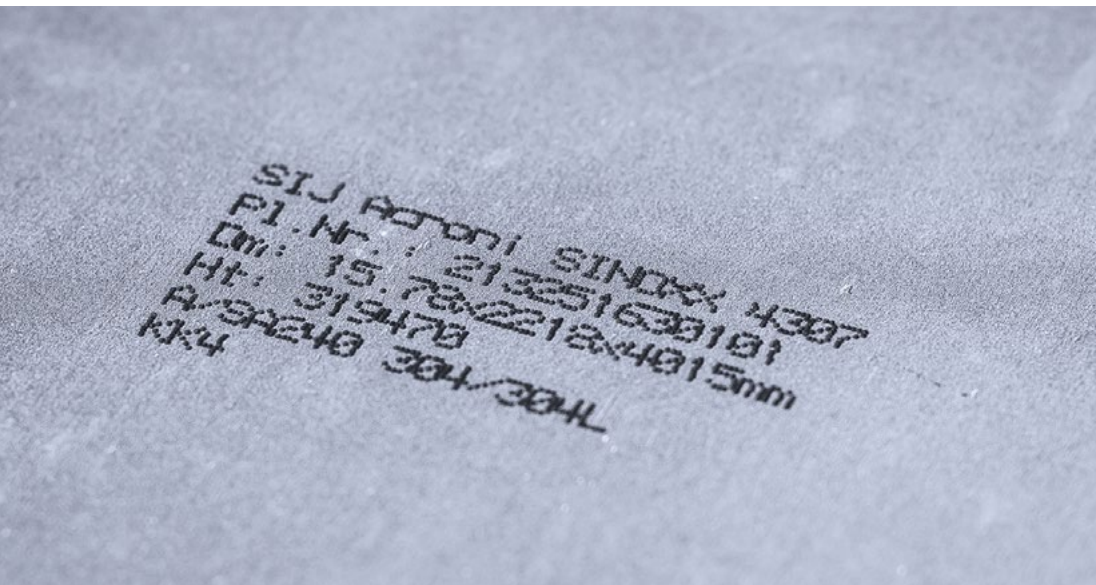 SIJ Acroni SINOXX 4307
Pl.Nr.: 213251630101
Dm: 15.70x2212x4015mm
Ht: 319470
A/SA240 304/304L
KK4